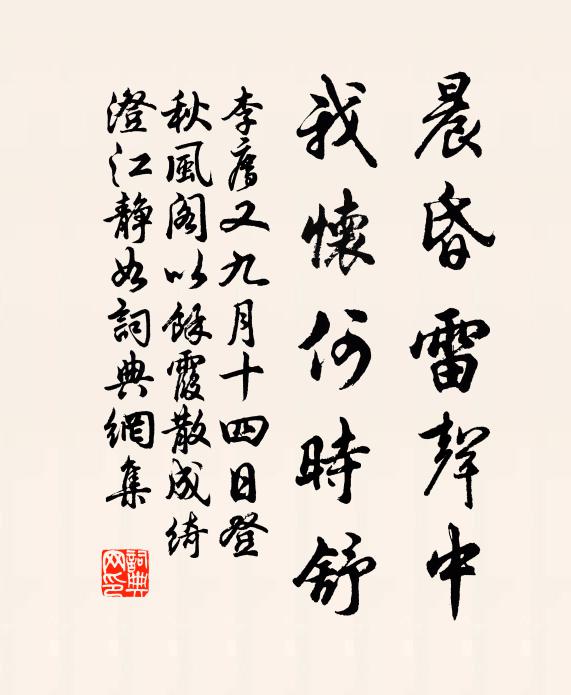 晨昏雷聲中
我懷何時舒
李廌又九月十四日登
秋風閣以餘霞散成綺
澄江靜如詞典網集
詞典網印